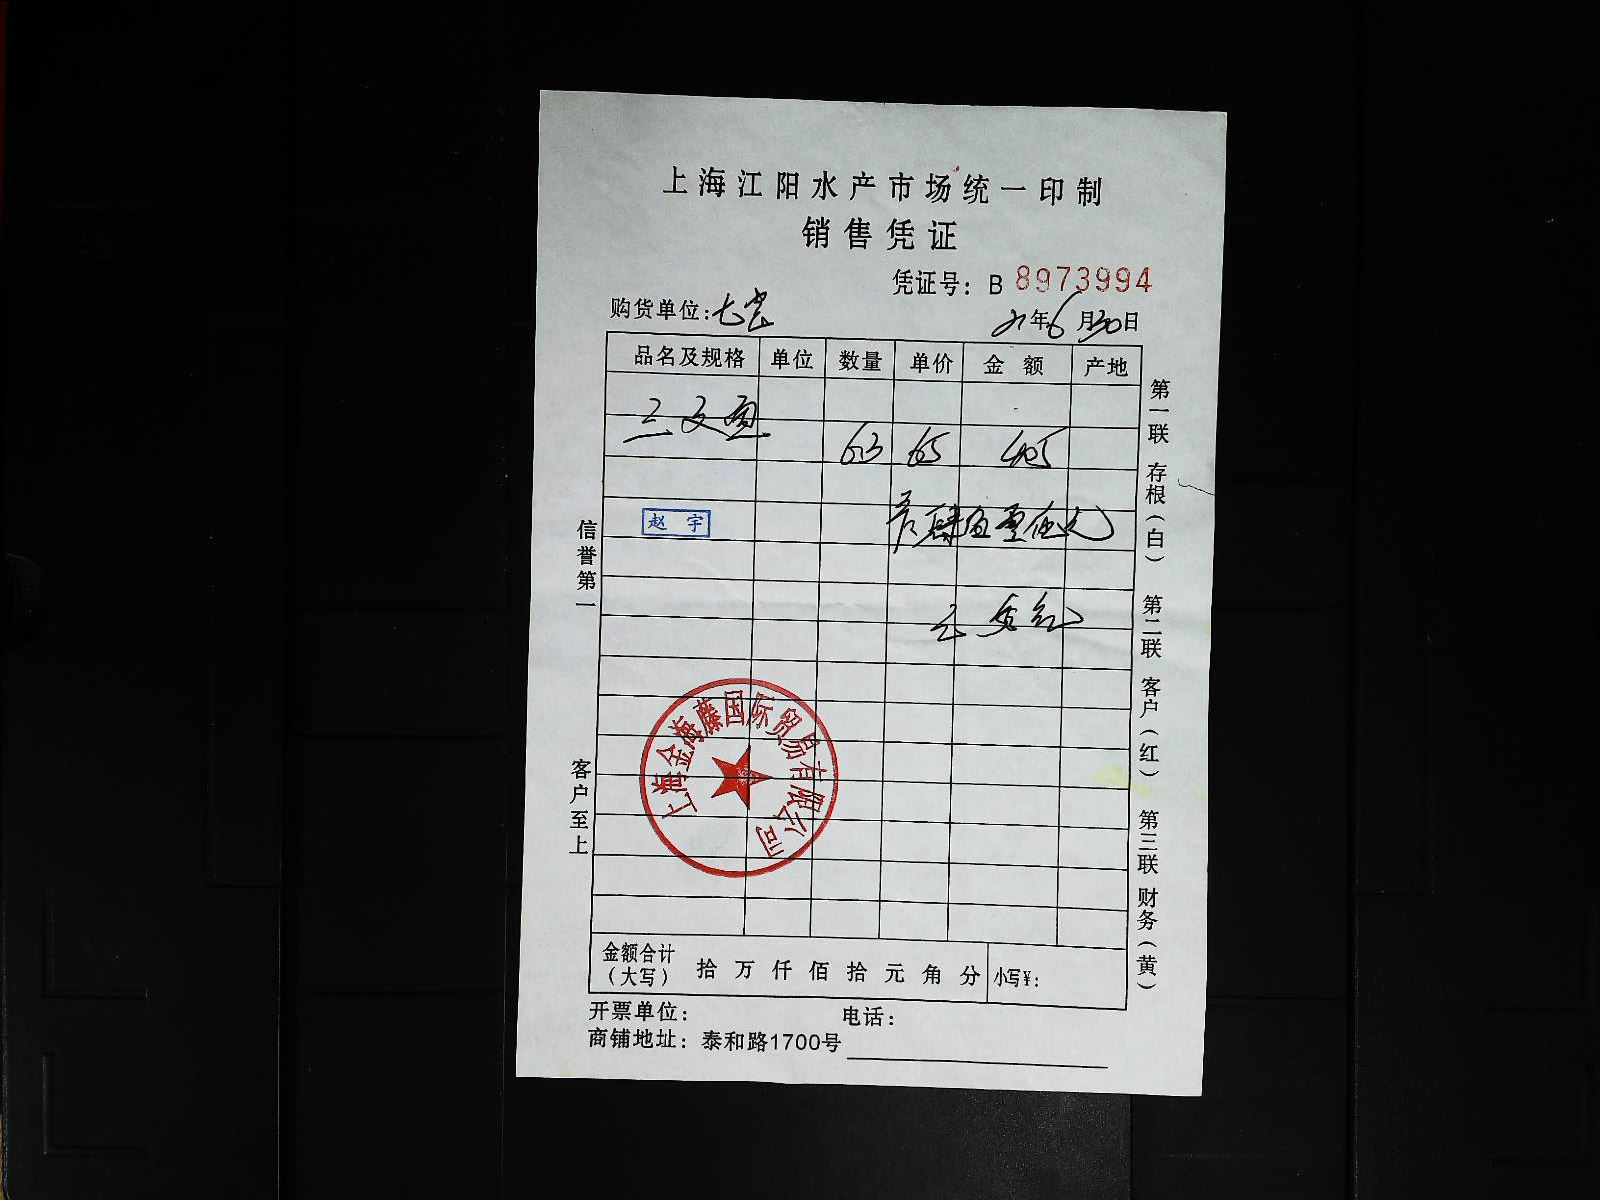 上海江阳水产市场统一印制
销售凭证
凭证号：B 8973994
购货单位：七
21年6月30日
品名及规格 单位 数量 单价 金额 产地
三文鱼 63 65 405
赵宇
信誉第一
客户至上
上海金海藤国际贸易有限公司
金额合计（大写） 拾 万 仟 佰 拾 元 角 分 小写¥：
开票单位： 电话：
商铺地址：泰和路1700号
第一联 存根（白） 第二联 客户（红） 第三联 财务（黄）